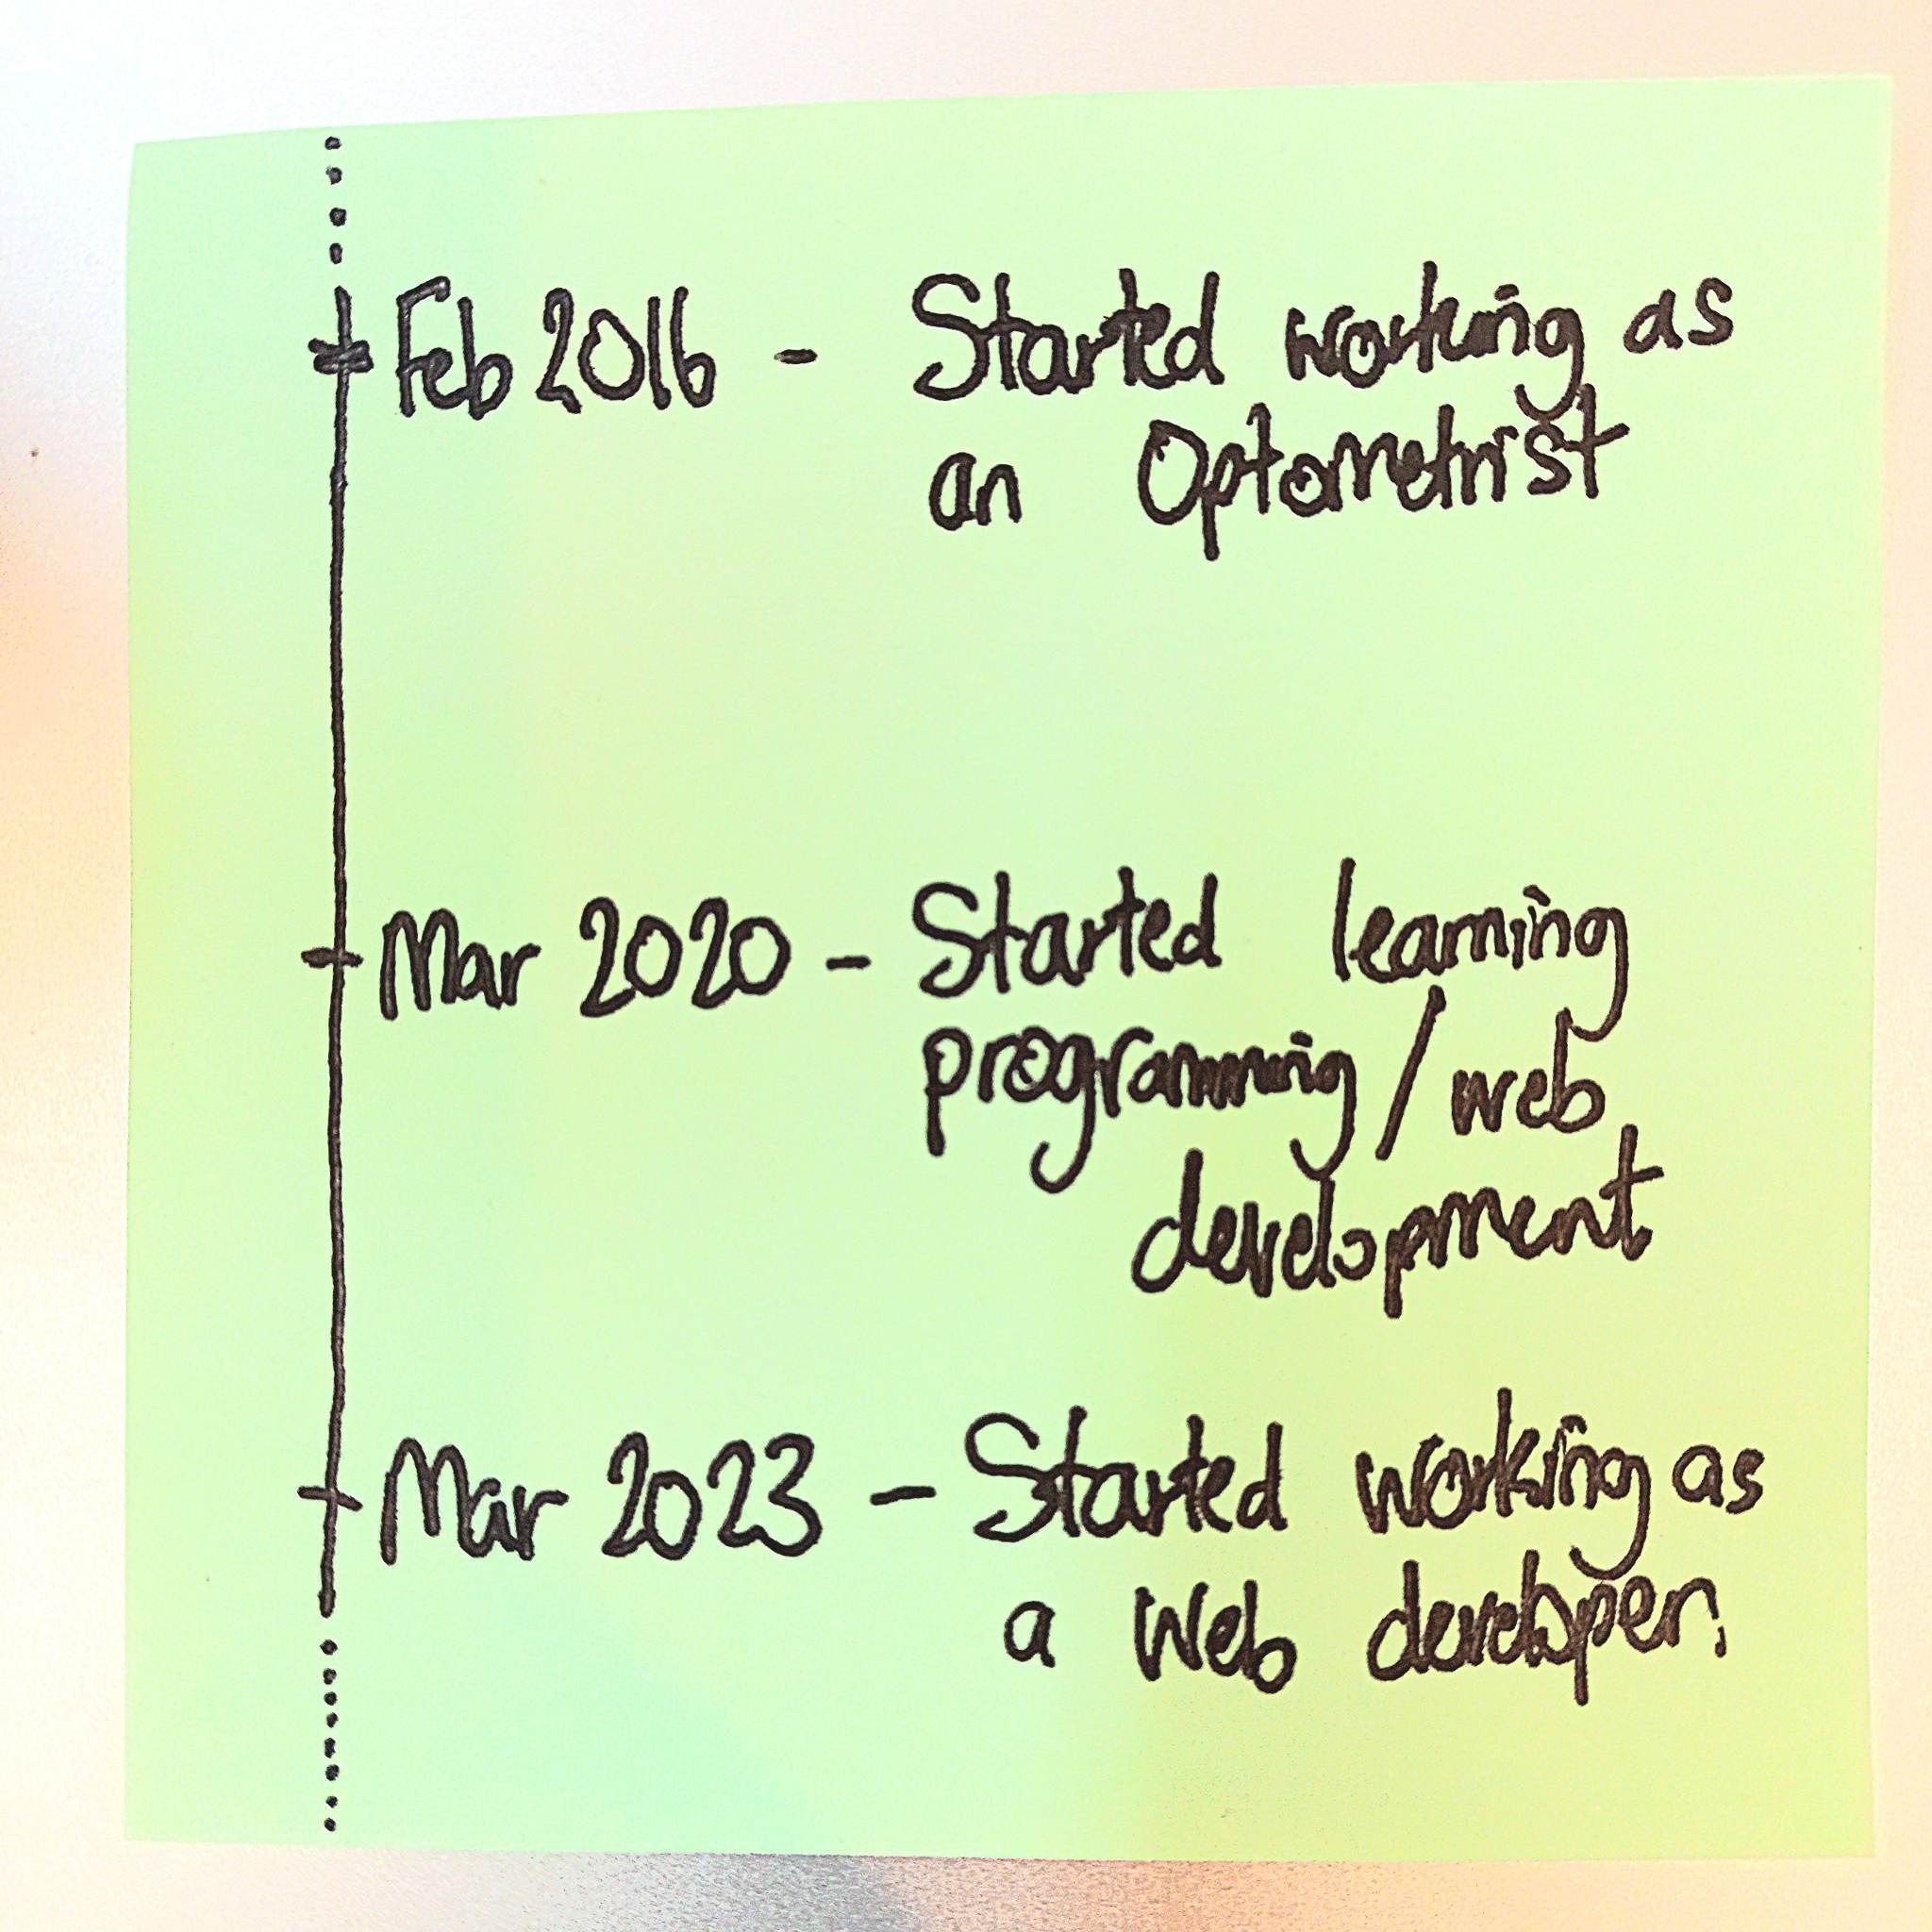 Feb 2016 - Started working as
an Optometrist
Mar 2020 - Started learning
programming / web
development
Mar 2023 - Started working as
a Web developer.